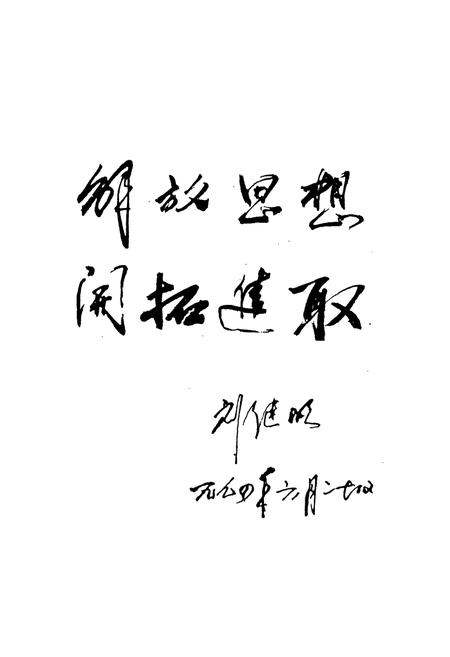 解放思想
開拓進取
刘健
一九九四年六月二十